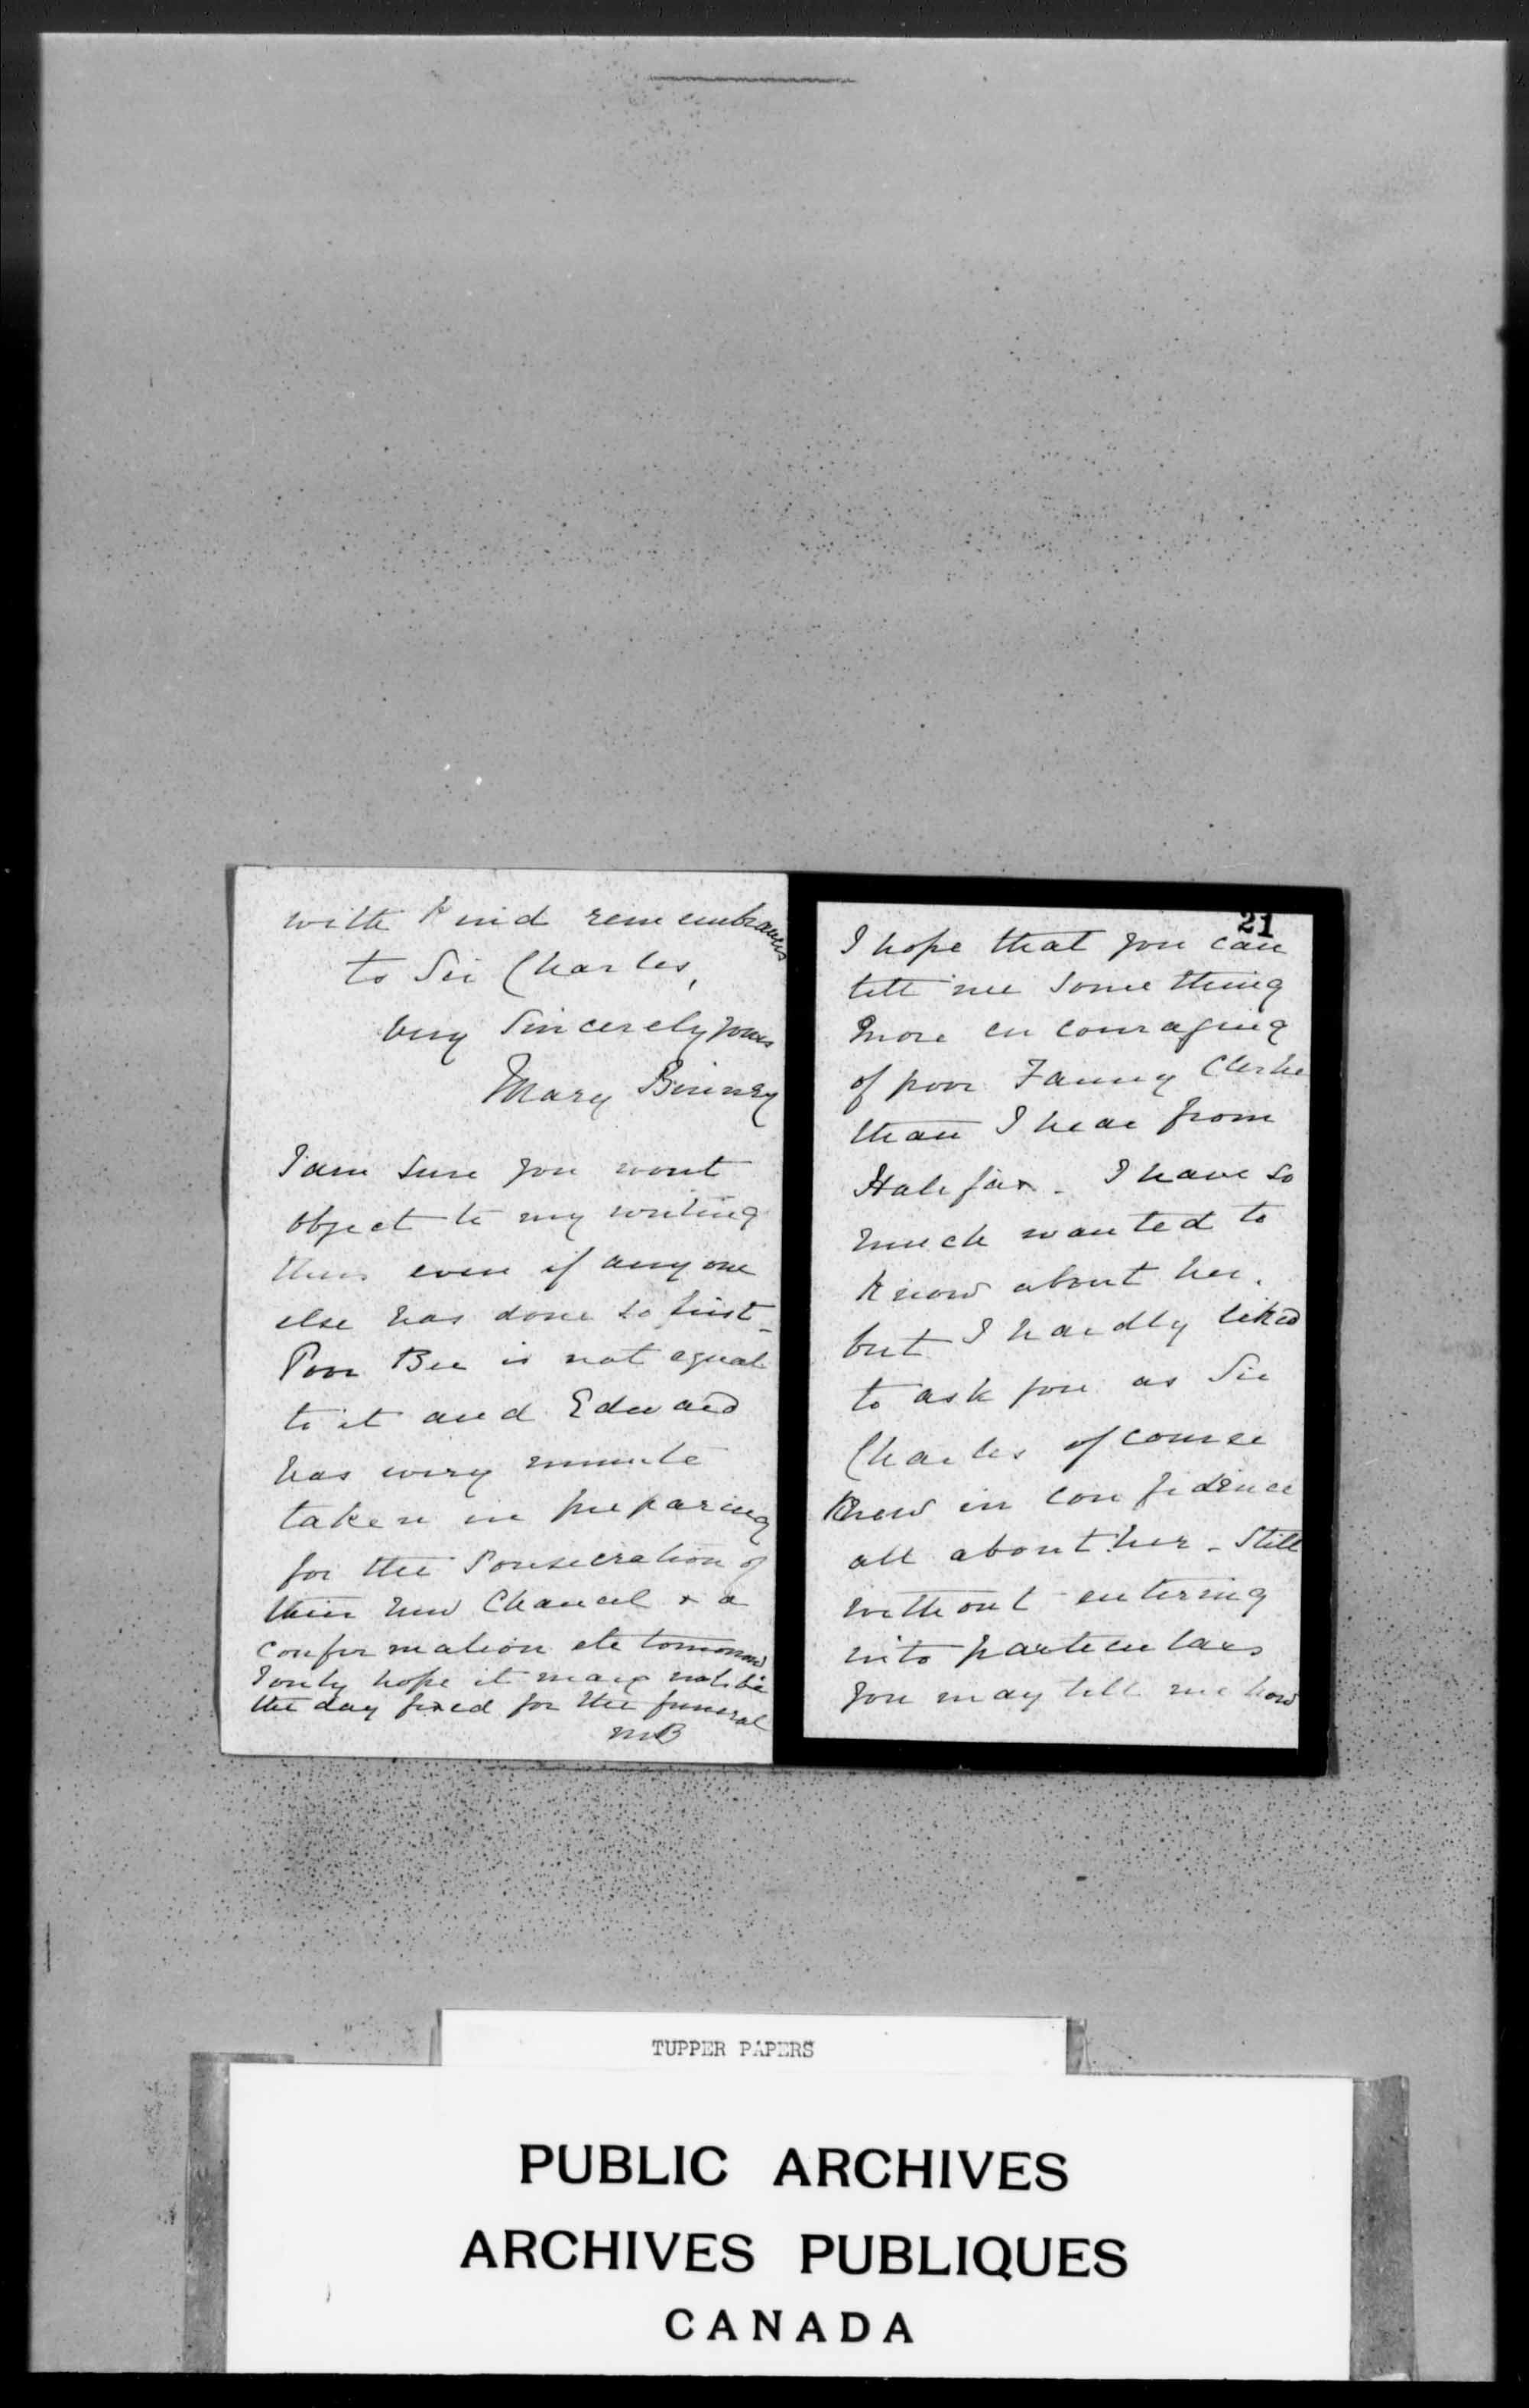 with kind remembrances
to Sir Charles,
Very Sincerely yours
Mary Binney
I am sure you wont
object to my writing
thus even if any one
else has done so first -
Poor Bee is not equal
to it and Edward
has every minute
taken in preparing
for the Consecration of
their new Chancel & a
confirmation etc tomorrow
I only hope it may not be
the day fixed for the funeral
MB
21
I hope that you can
tell me something
more encouraging
of poor Fanny Clerke
than I hear from
Halifax - I have so
much wanted to
know about her,
but I hardly liked
to ask you as Sir
Charles of course
knew in confidence
all about her - Still
without entering
into particulars
you may tell me how
TUPPER PAPERS
PUBLIC ARCHIVES
ARCHIVES PUBLIQUES
CANADA